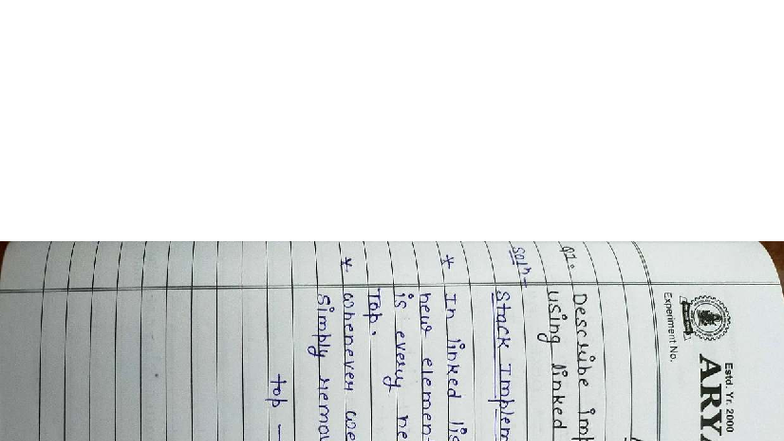 Estd. Yr. 2000
ARY
Experiment No.
Q1. Describe imp
using linked
Soln-
Stack Implem
* In linked lis
new elemen
is every ne
Top.
* whenever we
simply remov
top -